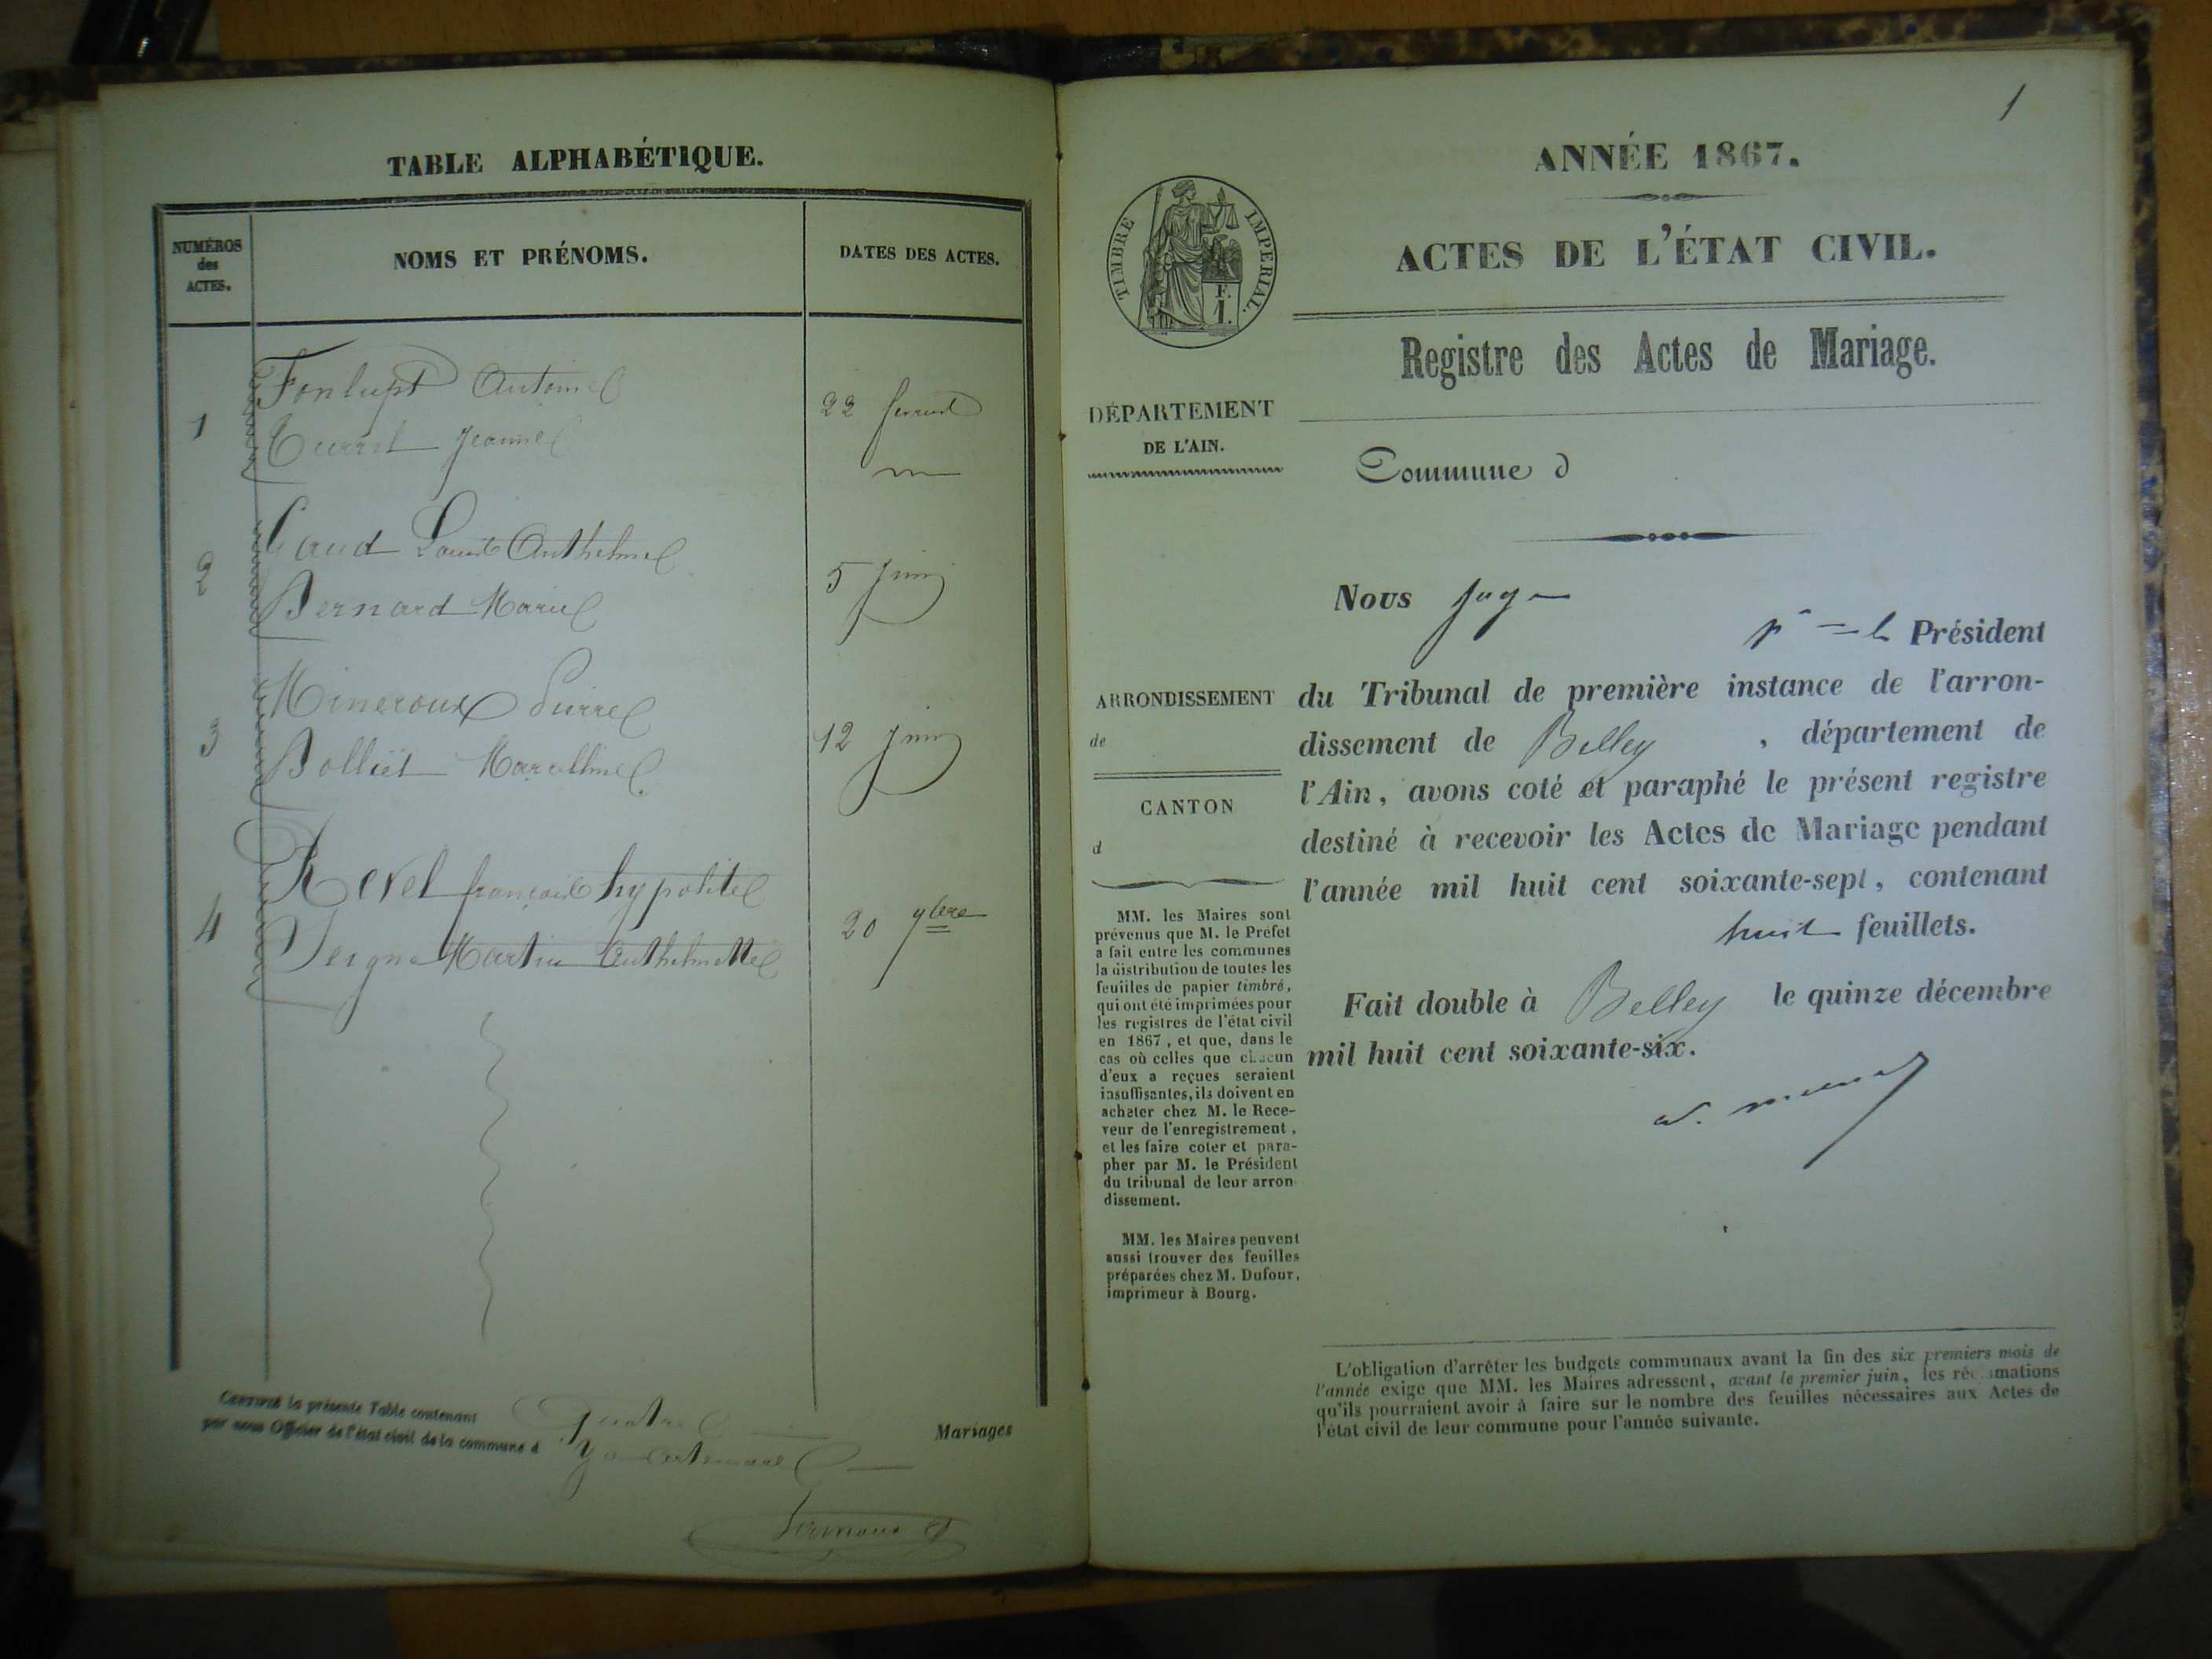 TABLE ALPHABÉTIQUE.
NUMÉROS
des
ACTES.
NOMS ET PRÉNOMS.
DATES DES ACTES.
1
Fonlupt Antoine
Jeanne
22
2
Gaud Anthelme
Bernard Marie
5 Juin
3
Mineroux Pierre
Bolliet
12 Juin
4
Revel françois hypolite
Anthelmette
20 9bre
CERTIFIÉ la présente Table contenant quatre Mariages
par nous Officier de l'état civil de la commune d
1
ANNÉE 1867.
ACTES DE L'ÉTAT CIVIL.
Registre des Actes de Mariage.
TIMBRE IMPERIAL.
F.
1.
DÉPARTEMENT
DE L'AIN.
Commune d
Nous
Président
ARRONDISSEMENT
de
CANTON
d
du Tribunal de première instance de l'arron-
dissement de Belley , département de
l'Ain, avons coté et paraphé le présent registre
destiné à recevoir les Actes de Mariage pendant
l'année mil huit cent soixante-sept, contenant
huit feuillets.
Fait double à Belley le quinze décembre
mil huit cent soixante-six.
MM. les Maires sont
prévenus que M. le Préfet
a fait entre les communes
la distribution de toutes les
feuilles de papier timbré,
qui ont été imprimées pour
les registres de l'état civil
en 1867, et que, dans le
cas où celles que chacun
d'eux a reçues seraient
insuffisantes, ils doivent en
acheter chez M. le Rece-
veur de l'enregistrement,
et les faire coter et para-
pher par M. le Président
du tribunal de leur arron-
dissement.
MM. les Maires peuvent
aussi trouver des feuilles
préparées chez M. Dufour,
imprimeur à Bourg.
L'obligation d'arrêter les budgets communaux avant la fin des six premiers mois de
l'année exige que MM. les Maires adressent, avant le premier juin, les réclamations
qu'ils pourraient avoir à faire sur le nombre des feuilles nécessaires aux Actes de
l'état civil de leur commune pour l'année suivante.